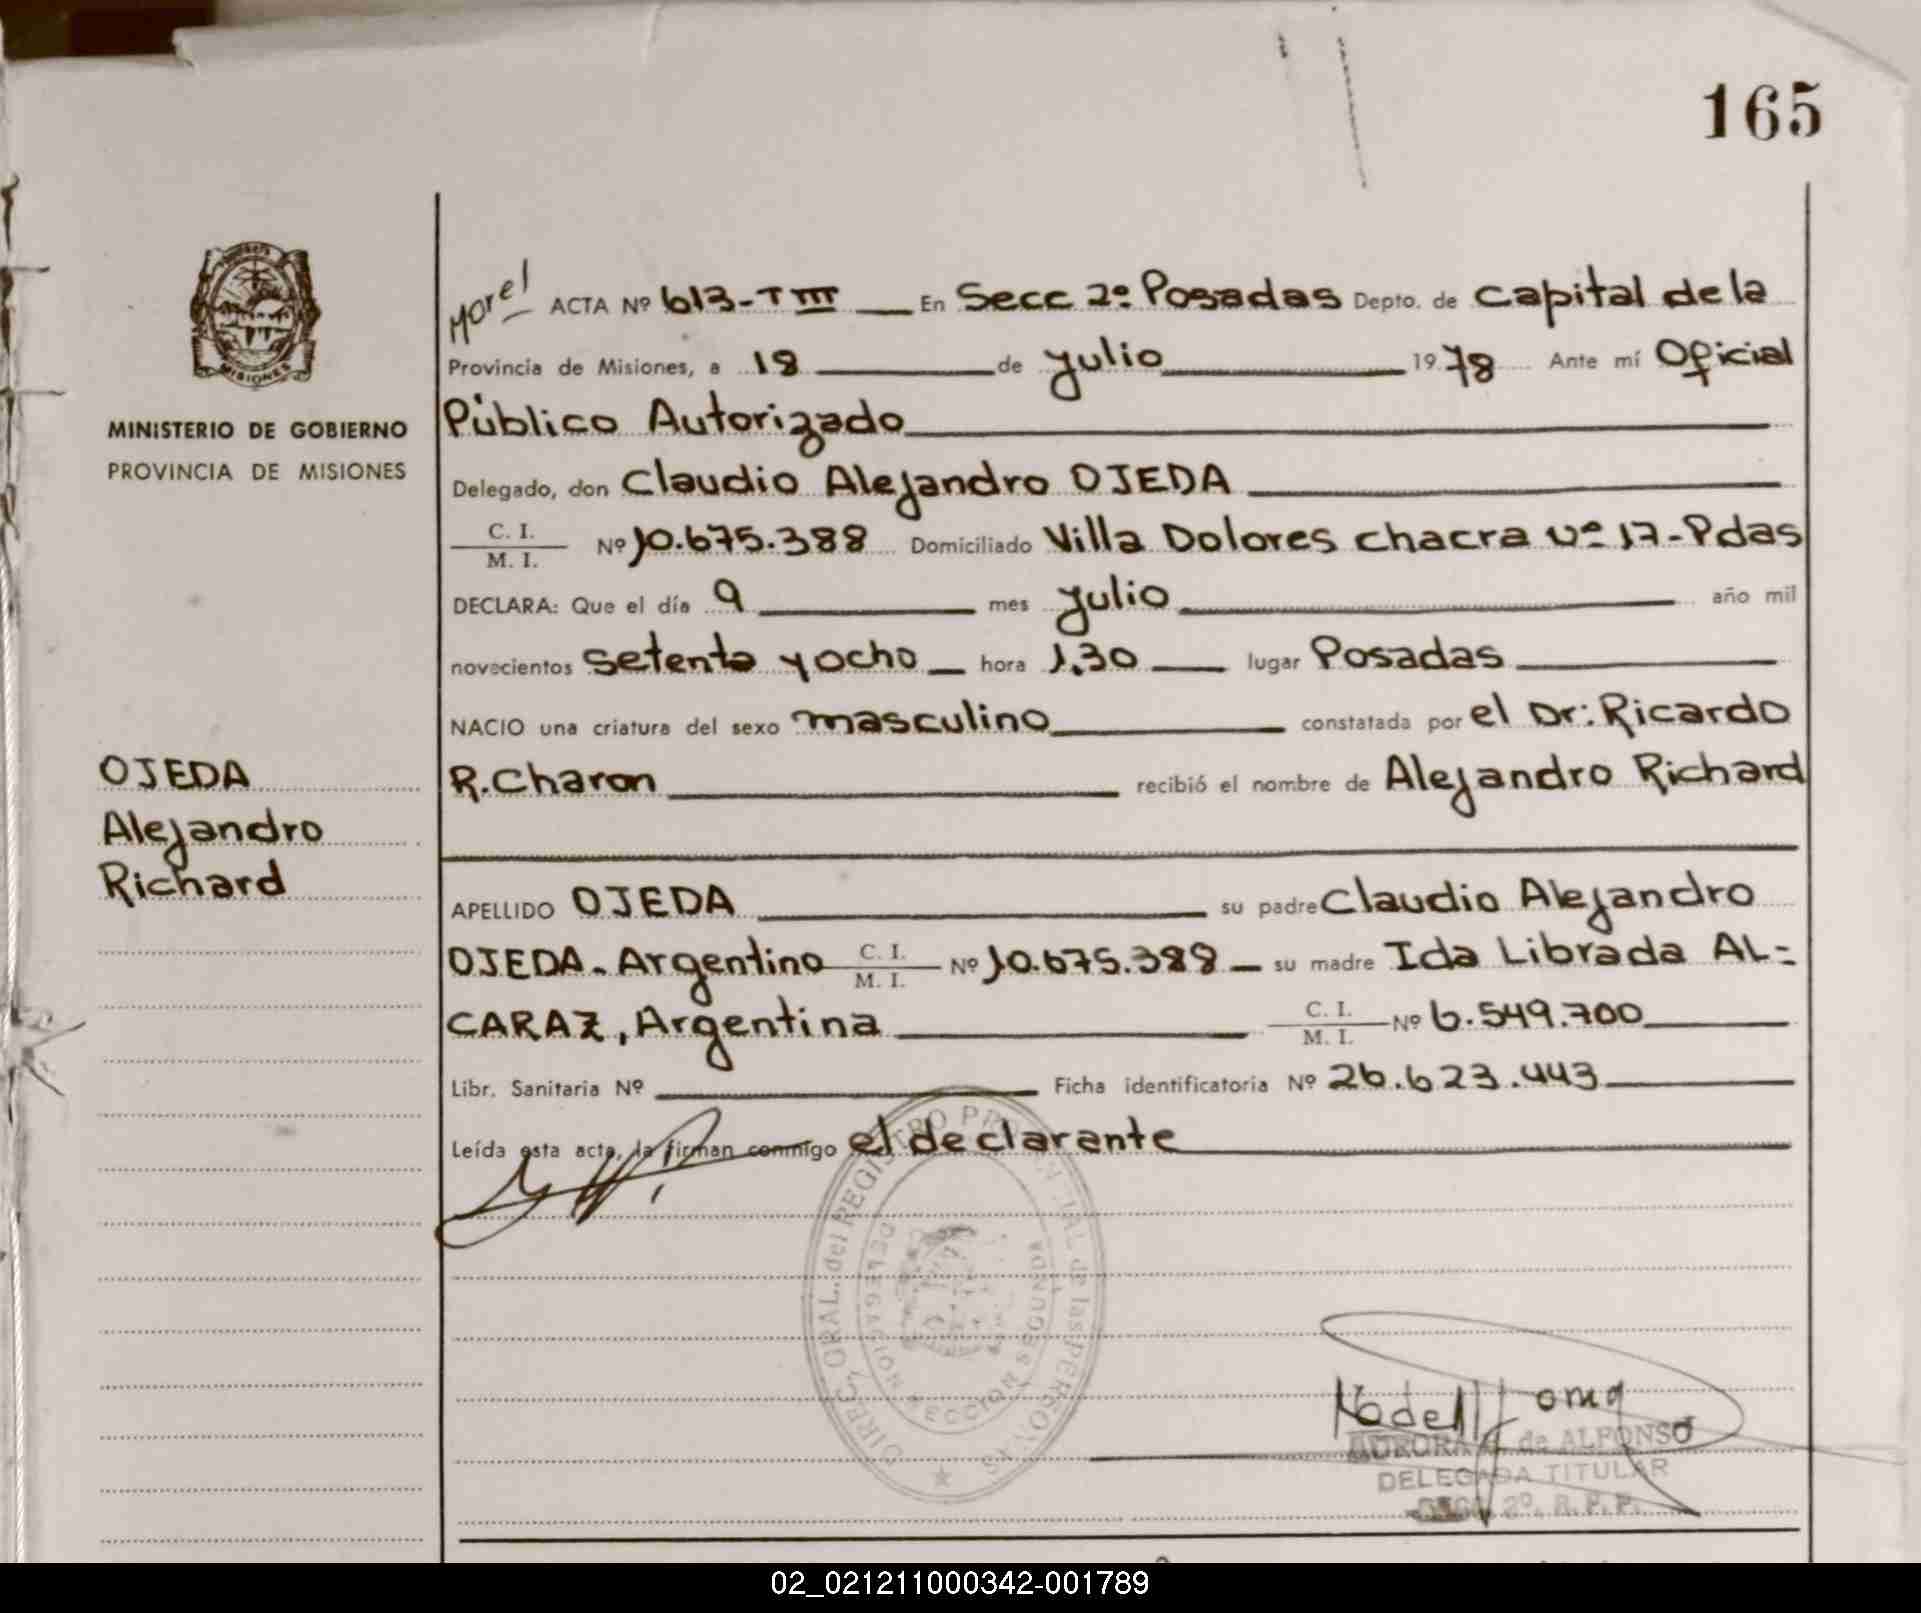 165
MISIONES
MINISTERIO DE GOBIERNO
PROVINCIA DE MISIONES
OJEDA
Alejandro
Richard
Morel ACTA Nº 613-T III En Secc 2º Posadas Depto. de Capital de la
Provincia de Misiones, a 18 de julio 1978 Ante mí Oficial
Público Autorizado
Delegado, don Claudio Alejandro OJEDA
C. I. / M. I. Nº 10.675.388 Domiciliado Villa Dolores chacra nº 17-Pdas
DECLARA: Que el día 9 mes julio año mil
novecientos setenta y ocho hora 1.30 lugar Posadas
NACIO una criatura del sexo masculino constatada por el Dr: Ricardo
R. Charon recibió el nombre de Alejandro Richard
APELLIDO OJEDA su padre Claudio Alejandro
OJEDA. Argentino C. I. / M. I. Nº 10.675.388 su madre Ida Librada AL=
CARAZ, Argentina C. I. / M. I. Nº 6.549.700
Libr. Sanitaria Nº Ficha identificatoria Nº 26.623.443
Leída esta acta, la firman conmigo el declarante
DIREC. GRAL. del REGISTRO PROVINCIAL de las PERSONAS
DELEGACION SECCION SEGUNDA
AURORA de ALFONSO
DELEGADA TITULAR
SECC. 2º. R. P. P.
02_021211000342-001789